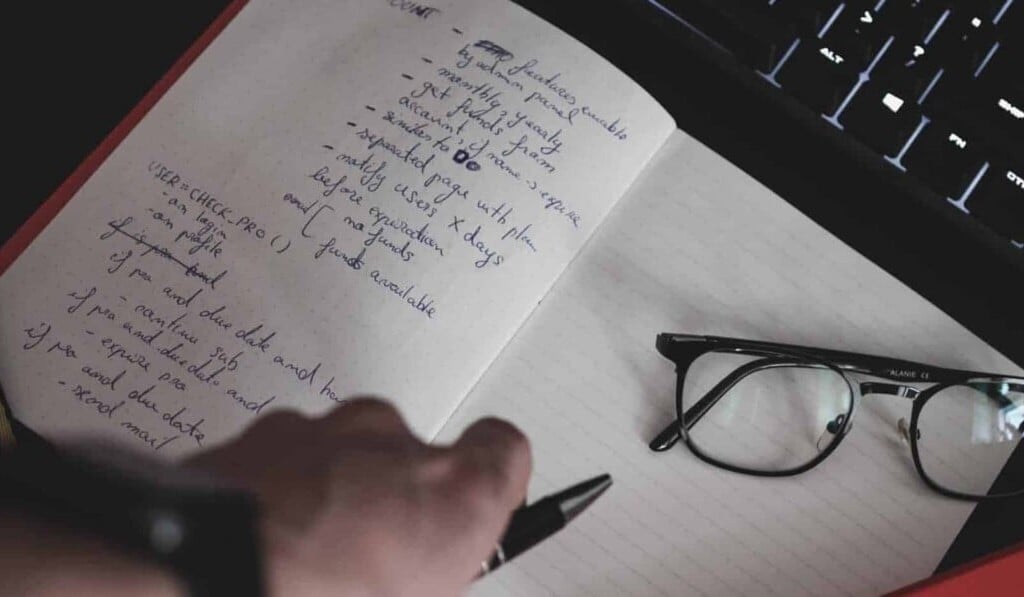 OUNT
- features enable
by admin panel
- monthly, yearly
- get funds from
account, if name-s expire
similar to DO
- separated page with plan
- notify users X days
before expiration
and [ no funds
funds available
USER=CHECK_PRO()
- on login
- on profile
if is pro and
if pro and due date and ha
- continu sub
if pro and due date and
- expire pro
if pro and due date
- send mail
ALT
?
FN
SHIFT
ALANIE CE